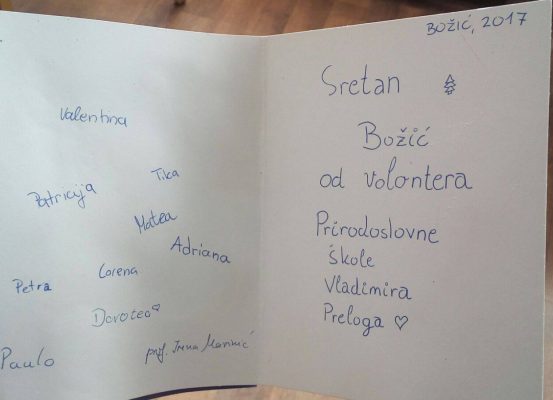 Valentina
Tika
Patricija
Matea
Adriana
Lorena
Petra
Doroteo♡
Paulo
prof. Irena
BOŽIĆ, 2017
Sretan
Božić
od volontera
Prirodoslovne
škole
Vladimira
Preloga ♡